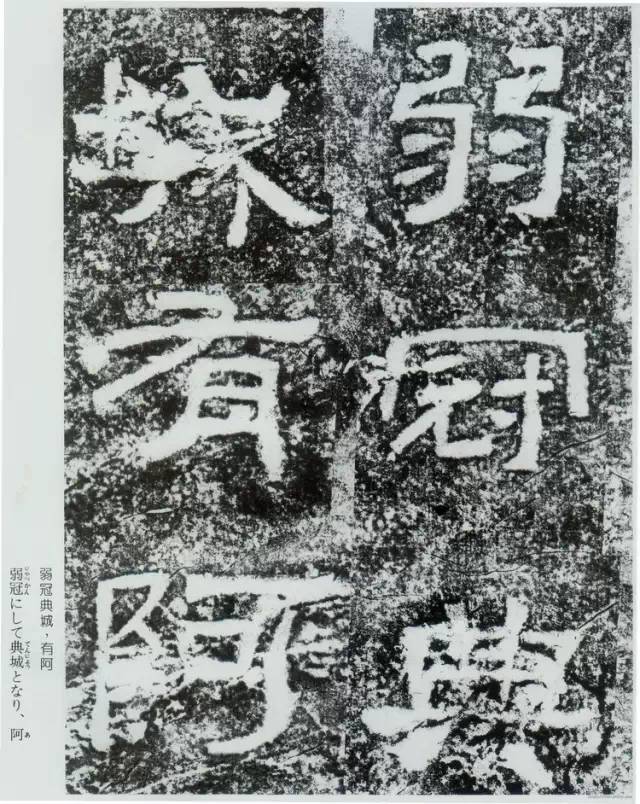 弱冠典
城有阿
弱冠典城，有阿
弱冠にして典城となり、阿